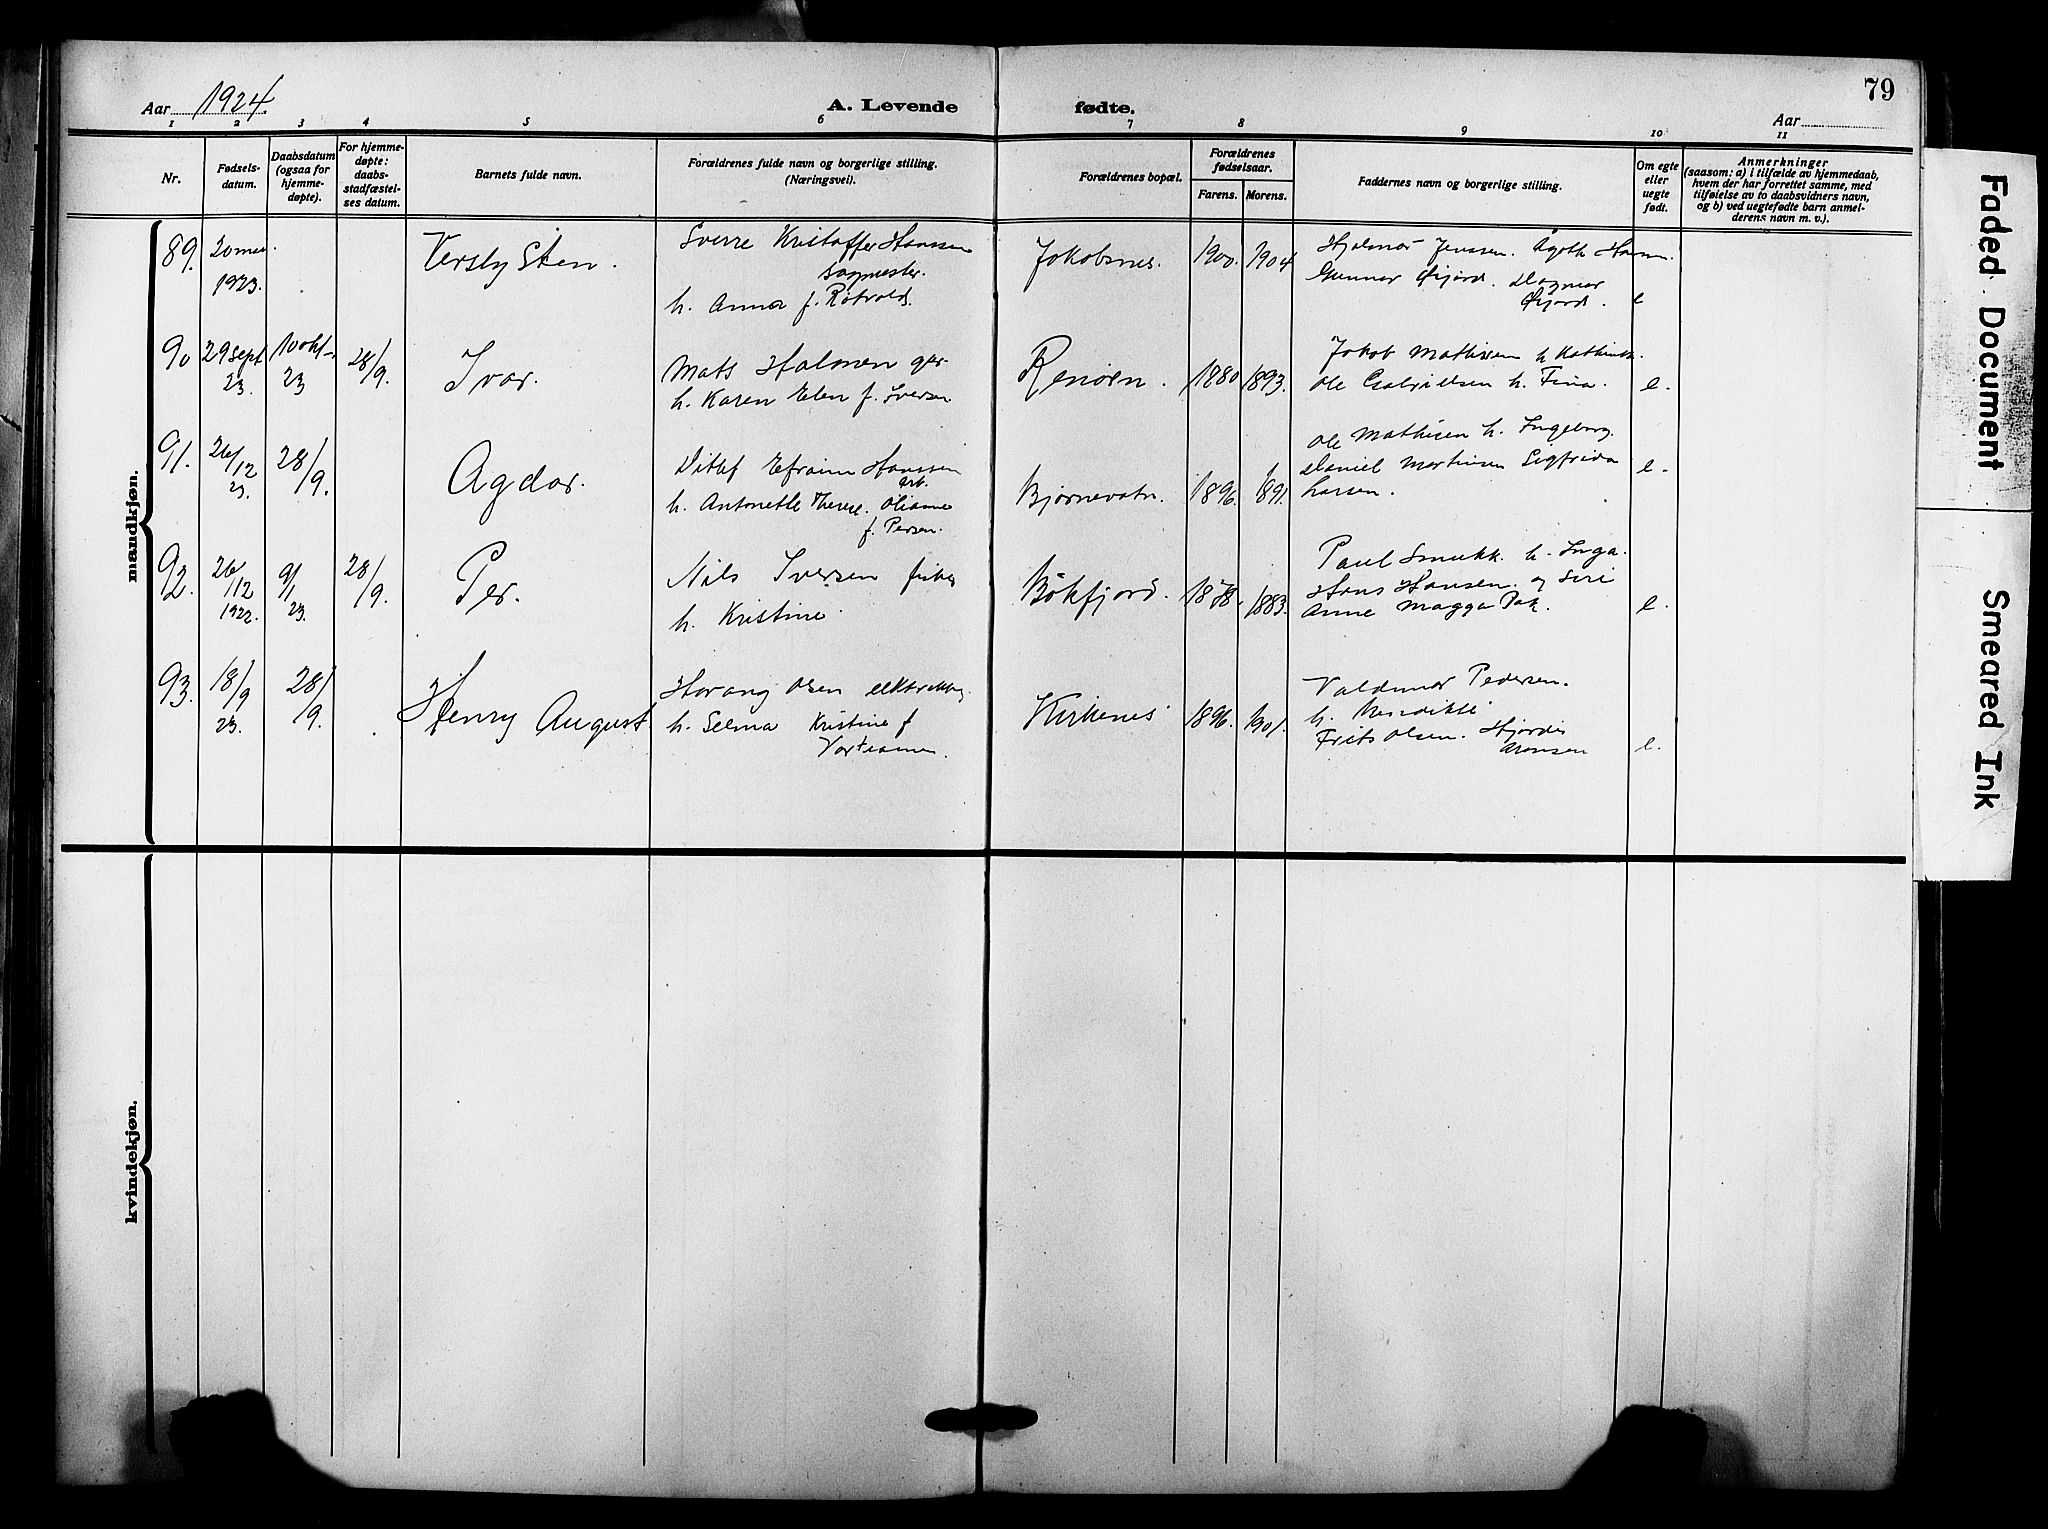 79
Aar 1924.
A. Levende fødte.
Aar
1 2 3 4 5 6 7 8 9 10 11
Nr.
Fødsels-
datum.
Daabsdatum
(ogsaa for
hjemme-
døpte).
For hjemme-
døpte:
daabs-
stadfæstel-
ses datum.
Barnets fulde navn.
Forældrenes fulde navn og borgerlige stilling.
(Næringsvei).
Forældrenes bopæl.
Forældrenes
fødselsaar.
Farens. Morens.
Faddernes navn og borgerlige stilling.
Om egte
eller
uegte
født.
Anmerkninger
(saasom: a) i tilfælde av hjemmedaab,
hvem der har forrettet samme, med
tilføielse av to daabsvidners navn,
og b) ved uegtefødte barn anmel-
derens navn m. v.).
mandkjøn.
89.
1923.
Versly Sten.
Sverre Kristoffer Hanssen
sagmester.
h. Anna f.
Jakobsnes.
1900. 1904
Hjalmar Jenssen. Ågoth
Gunnar Øijord. Dagmar
Øijord.
e
90
29 sept
23.
10 okt
23
28/9.
Ivar.
Mats Halonen
h. Karen Elen f. Iversen
Renøen.
1880 1893.
Jakob Mathisen h.
Ole Gabrielsen h. Fina.
e.
91.
26/12
23.
28/9.
Agdar.
Ditlef Efraim Hanssen
arb.
h. Antonette Therese. Oliane
f. Persen.
Bjørnevatn.
1896. 1891.
Ole Mathisen h. Ingeborg.
Daniel Martinsen Sigfrida
Larsen.
e.
92.
26/12
1922.
9/1
23.
28/9.
Per.
Nils Iversen fisker
h. Kristine
Bökfjord.
1878. 1883.
Paul Smukk. h. Inga.
Hans Hansen. og Siri
Anne Magga
e.
93.
18/9
23.
28/9.
Henry August
Olsen
h. Selma Kristine f
Kirkenes
1896. 1901.
Valdemar Pedersen.
h. Bendikte
Frits Olsen. Hjördis
Aronsen
e.
kvindekjøn.
Faded Document
Smeared Ink